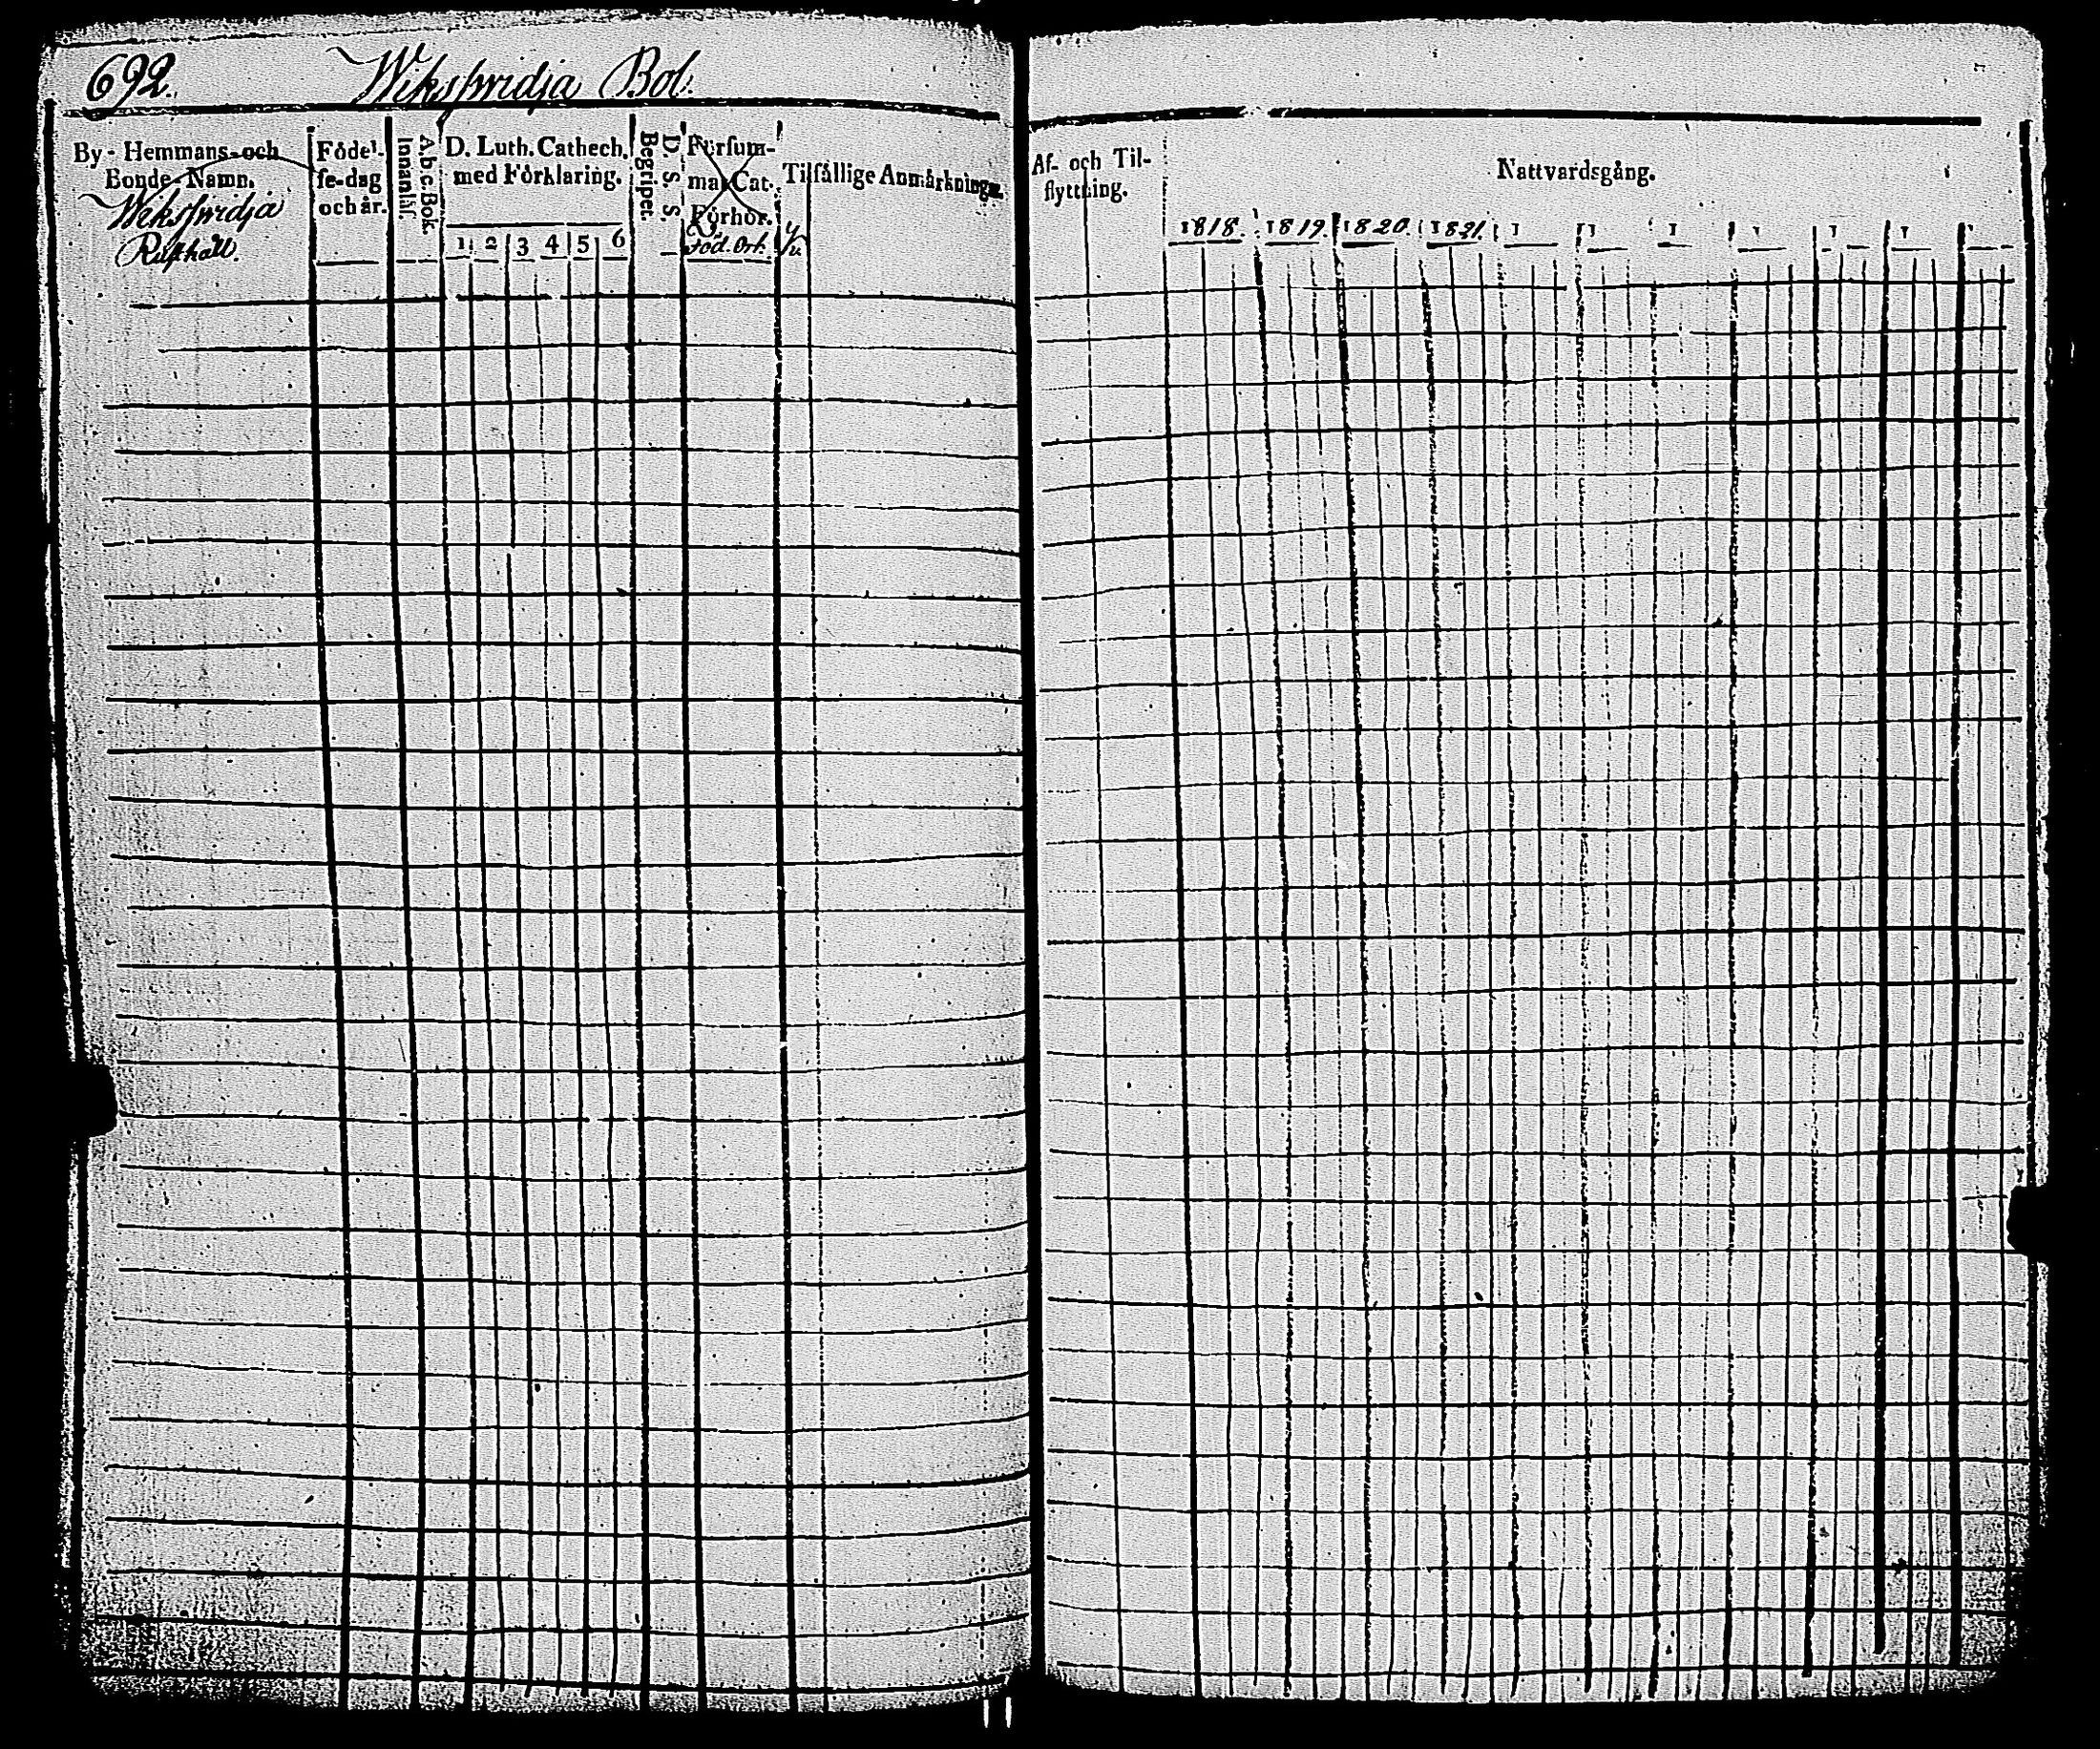 692. Wiksfwidja Bol.
By- Hemmans- och
Bonde-Namn.
Wiksfwidja
Rusthåll.
Födel-
se-dag
och år.
A.b.c. Bok.
Innanläs.
D. Luth. Cathech.
med Förklaring.
1 2 3 4 5 6
Begripet.
D. S. S.
Försum-
mat Cat.
Förhör.
Föd. Ort.
Tilfällige Anmärkning.
Af- och Til-
flyttning.
Nattvardsgång.
1818. 1819. 1820. 1821. 1 1 1 1 1 1 1